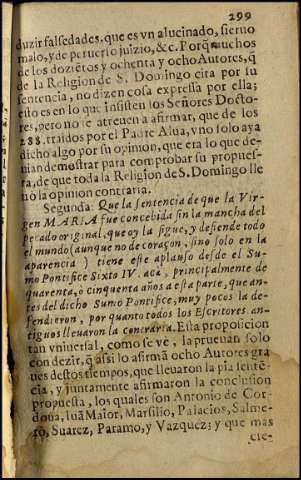 299
duzir falsedades, que es vn alucinado, sieruo
malo, y de peruerso juizio, &c. Porq̃ muchos
de los doziētos y ochenta y ocho Autores, q̃
de la Religion de S. Domingo cita por su
sentencia, no dizen cosa expressa por ella;
esto es en lo que insisten los Señores Docto-
res, pero no se atreuen a afirmar, que de los
288. traidos por el Padre Alua, vno solo aya
dicho algo por su opinion, que era lo que de-
uian demostrar para comprobar su propues-
ta, de que toda la Religion de S. Domingo lle
uò la opinion contraria.
Segunda: Que la sentencia de que la Vir-
gen MARIA fue concebida sin la mancha del
pecado original, que oy la sigue, y defiende todo
el mundo (aunque no de coraçon, sino solo en la
aparencia) tiene esse aplauso desde el Su-
mo Pontifice Sixto IV. acà, principalmente de
quarenta, ò cinquenta años a esta parte, que an-
tes del dicho Sumo Pontifice, muy pocos la de-
fendieron, por quanto todos los Escritores an-
tiguos lleuaron la contraria. Esta proposicion
tan vniuersal, como se vè, la prueuan solo
con dezir, q̃ assi lo afirmā ocho Autores gra
ues destos tiempos, que lleuaron la pia sentē-
cia, y juntamente afirmaron la conclusion
propuesta, los quales son Antonio de Cor-
doua, Iuā Maior, Marsilio, Palacios, Salme-
rō, Suarez, Paramo, y Vazquez; y que mas
cre-